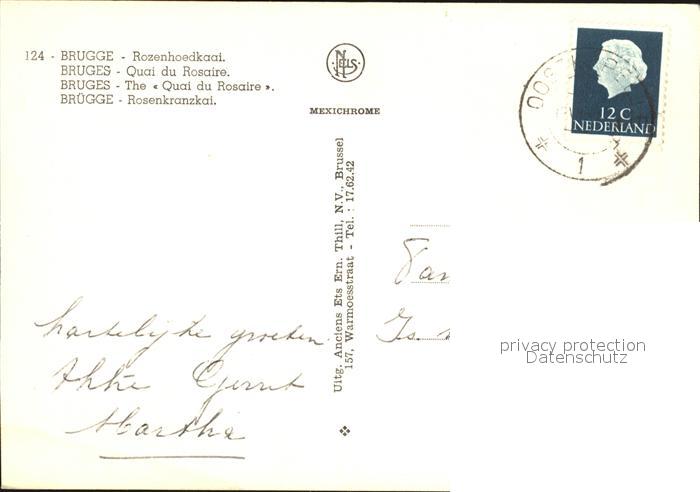 124 - BRUGGE - Rozenhoedkaai.
BRUGES - Quai du Rosaire.
BRUGES - The « Quai du Rosaire ».
BRÜGGE - Rosenkranzkai.
NELS
MEXICHROME
12 C
NEDERLAND
1
Uitg. Anciens Ets Ern. Thill, N.V., Brussel
157, Warmoesstraat - Tel. : 17.62.42
hartelijke groeten
Gerrit
Martha
Fam
privacy protection
Datenschutz